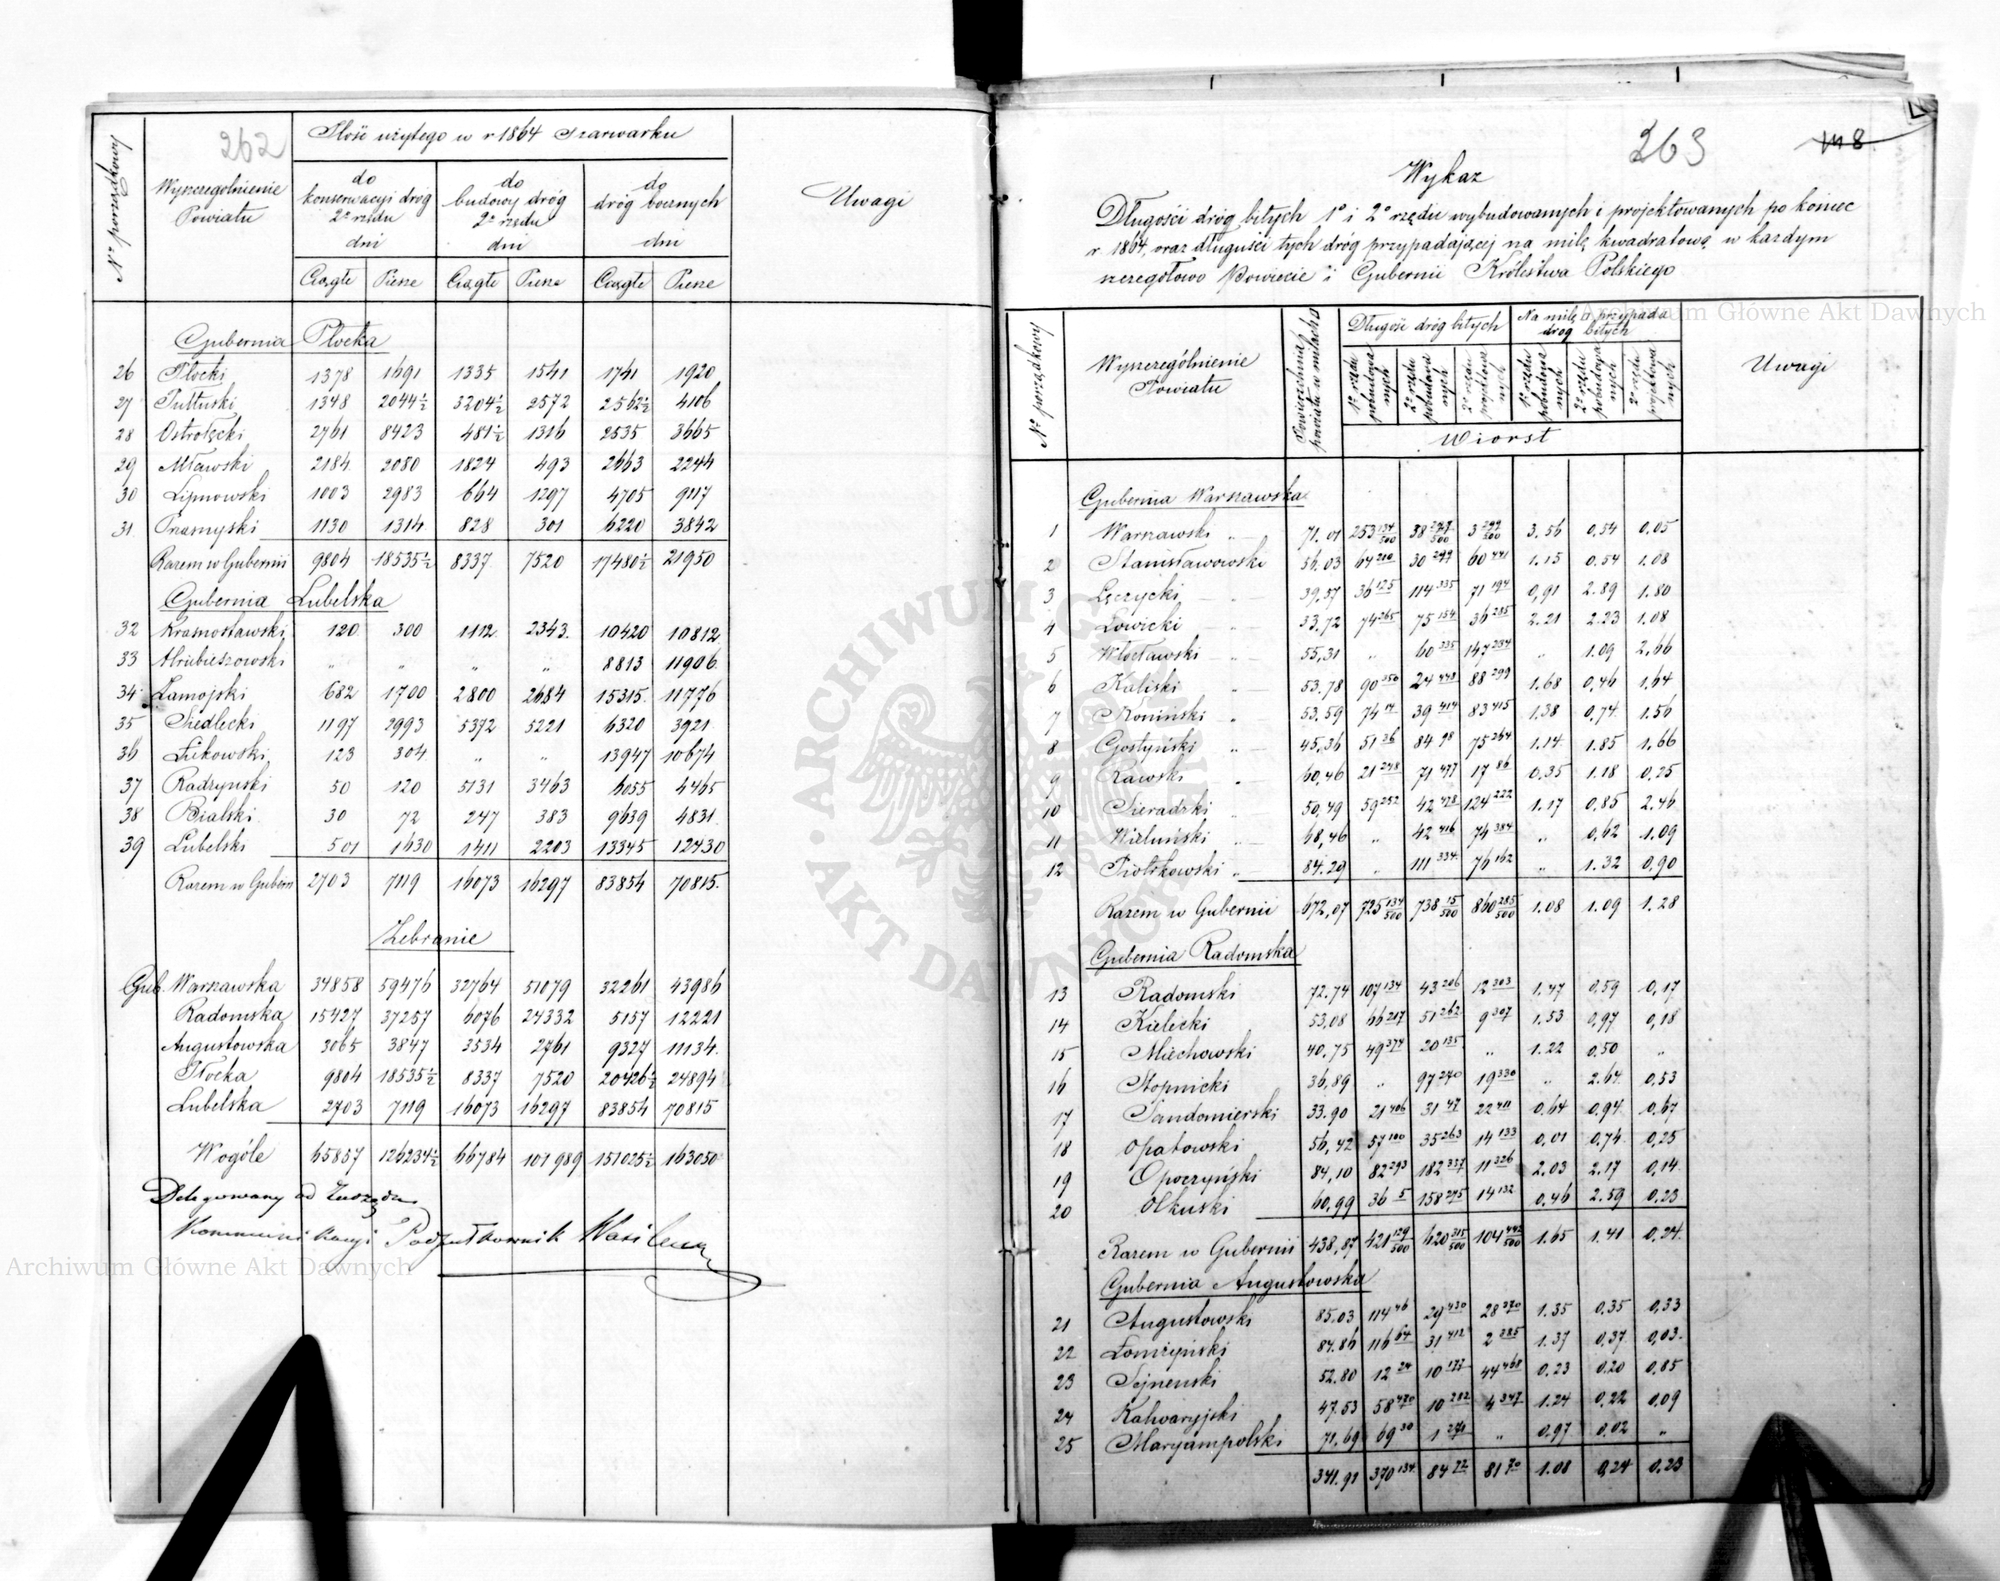 262
Nr porządkowy
Wyszczególnienie Powiatu
Ilość użytego w r 1864 szarwarku
do konserwacyi dróg 2o rzędu dni
do budowy dróg 2o rzędu dni
do dróg bocznych dni
Uwagi
Ciągłe Piesze Ciągłe Piesze Ciągłe Piesze
Gubernia Płocka
26 Płocki 1378 1691 1335 1541 1741 1920
27 Pułtuski 1348 2044½ 3204½ 2572 2562½ 4106
28 Ostrołęcki 2761 8423 481½ 1316 2535 3665
29 Mławski 2184 2080 1824 493 2663 2244
30 Lipnowski 1003 2983 664 1297 4705 9117
31 Prasnyski 1130 1314 828 301 6220 3842
Razem w Gubernii 9804 18535½ 8337 7520 17480½ 21950
Gubernia Lubelska
32 Krasnostawski 120 300 1112 2343 10420 10812
33 Hrubieszowski „ „ „ „ 8813 11906
34 Zamojski 682 1700 2800 2684 15315 11776
35 Siedlecki 1197 2993 5372 5221 6320 3921
36 Łukowski 123 304 „ „ 13947 10674
37 Radzynski 50 120 5131 3463 6055 4465
38 Bialski 30 72 247 383 9639 4831
39 Lubelski 501 1630 1411 2203 13345 12430
Razem w Gubern 2703 7119 16073 16297 83854 70815
Zebranie
Gub. Warszawska 34858 59476 32764 51079 32261 43986
Radomska 15427 37257 6076 24332 5157 12221
Augustowska 3065 3847 3534 2761 9327 11134
Płocka 9804 18535½ 8337 7520 20426½ 24894
Lubelska 2703 7119 16073 16297 83854 70815
Wogóle 65857 126234½ 66784 101989 151025½ 163050
Delegowany od Zarządu
Kommunikacyi Podpułkownik
263
118
Wykaz
Długości dróg bitych 1o i 2o rzędu wybudowanych i projektowanych po koniec
r 1864, oraz długości tych dróg przypadającej na milę kwadratową w każdym
szczegółowo Powiecie i Gubernii Królestwa Polskiego
Nr porządkowy
Wyszczególnienie Powiatu
Powierzchnia powiatu w milach □
Długość dróg bitych
Na milę □ przypada dróg bitych
Uwagi
1o rzędu pobudowanych
2o rzędu pobudowanych
2o rzędu projektowanych
1o rzędu pobudowanych
2o rzędu pobudowanych
2o rzędu projektowanych
Wiorst
Gubernia Warszawska
1 Warszawski „ 71.01 253 134/500 38 277/500 3 299/500 3.56 0,54 0,05
2 Stanisławowski 56,03 64 210 30 299 60 441 1.15 0.54 1.08
3 Łęczycki „ 39,57 36 125 114 335 71 194 0,91 2.89 1.80
4 Łowicki „ 33.72 74 265 75 154 36 285 2.21 2.23 1.08
5 Włocławski „ 55,31 „ 60 335 147 234 „ 1.09 2,66
6 Kaliski „ 53.78 90 350 24 448 88 299 1.68 0,46 1,64
7 Koniński „ 53.59 74 14 39 414 83 415 1.38 0,74 1.56
8 Gostyński „ 45,36 51 36 84 98 75 264 1.14 1.85 1.66
9 Rawski „ 60,46 21 248 71 477 17 86 0,35 1.18 0,25
10 Sieradzki „ 50,49 59 252 42 478 124 222 1.17 0,85 2.46
11 Wieluński „ 68,46 „ 42 416 74 384 „ 0,62 1.09
12 Piotrkowski „ 84.29 „ 111 334 76 162 „ 1.32 0,90
Razem w Gubernii 672,07 725 134/500 738 15/500 860 285/500 1.08 1.09 1.28
Gubernia Radomska
13 Radomski 72.74 107 134 43 206 12 303 1.47 0,59 0,17
14 Kielecki 53,08 66 217 51 262 9 307 1.53 0,97 0,18
15 Miechowski 40.75 49 374 20 135 „ 1.22 0,50 „
16 Stopnicki 36,89 „ 97 270 19 330 „ 2.64 0,53
17 Sandomierski 33.90 21 406 31 47 22 411 0,64 0,94 0,67
18 Opatowski 56,42 57 100 35 263 14 133 0,01 0,74 0,25
19 Opoczyński 84,10 82 293 182 337 11 326 2.03 2.17 0,14
20 Olkuski 60,99 36 5 158 295 14 132 0,46 2.59 0.23
Razem w Gubernii 438,87 421 129/500 620 315/500 104 442/500 1.65 1.41 0,24
Gubernia Augustowska
21 Augustowski 85.03 114 46 29 430 28 270 1.35 0,35 0,33
22 Łomżyński 84.86 116 64 31 412 2 385 1.37 0,37 0,03
23 Sejneński 52.80 12 24 10 177 44 468 0.23 0.20 0,85
24 Kalwaryjski 47.53 58 470 10 282 4 347 1.24 0,22 0.09
25 Maryampolski 71,69 69 30 1 271 „ 0.97 0,02 „
341.91 370 134 84 72 81 70 1.08 0,24 0.23
Archiwum Główne Akt Dawnych
Archiwum Główne Akt Dawnych
ARCHIWUM GŁÓWNE AKT DAWNYCH